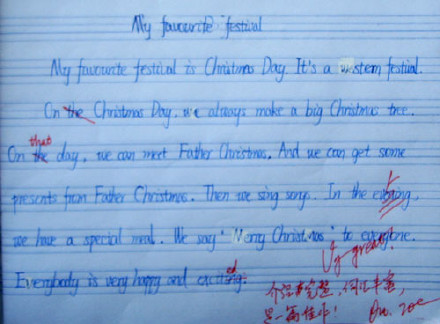 My favourite festival
My favourite festival is Christmas Day. It's a western festival.
On the Christmas Day, we always make a big Christmas tree.
that
On the day, we can meet Father Christmas. And we can get some
presents from Father Christmas. Then we sing songs. In the evening,
we have a special meal. We say "Merry Christmas" to everyone.
Very great!
Everybody is very happy and exciting.
ed